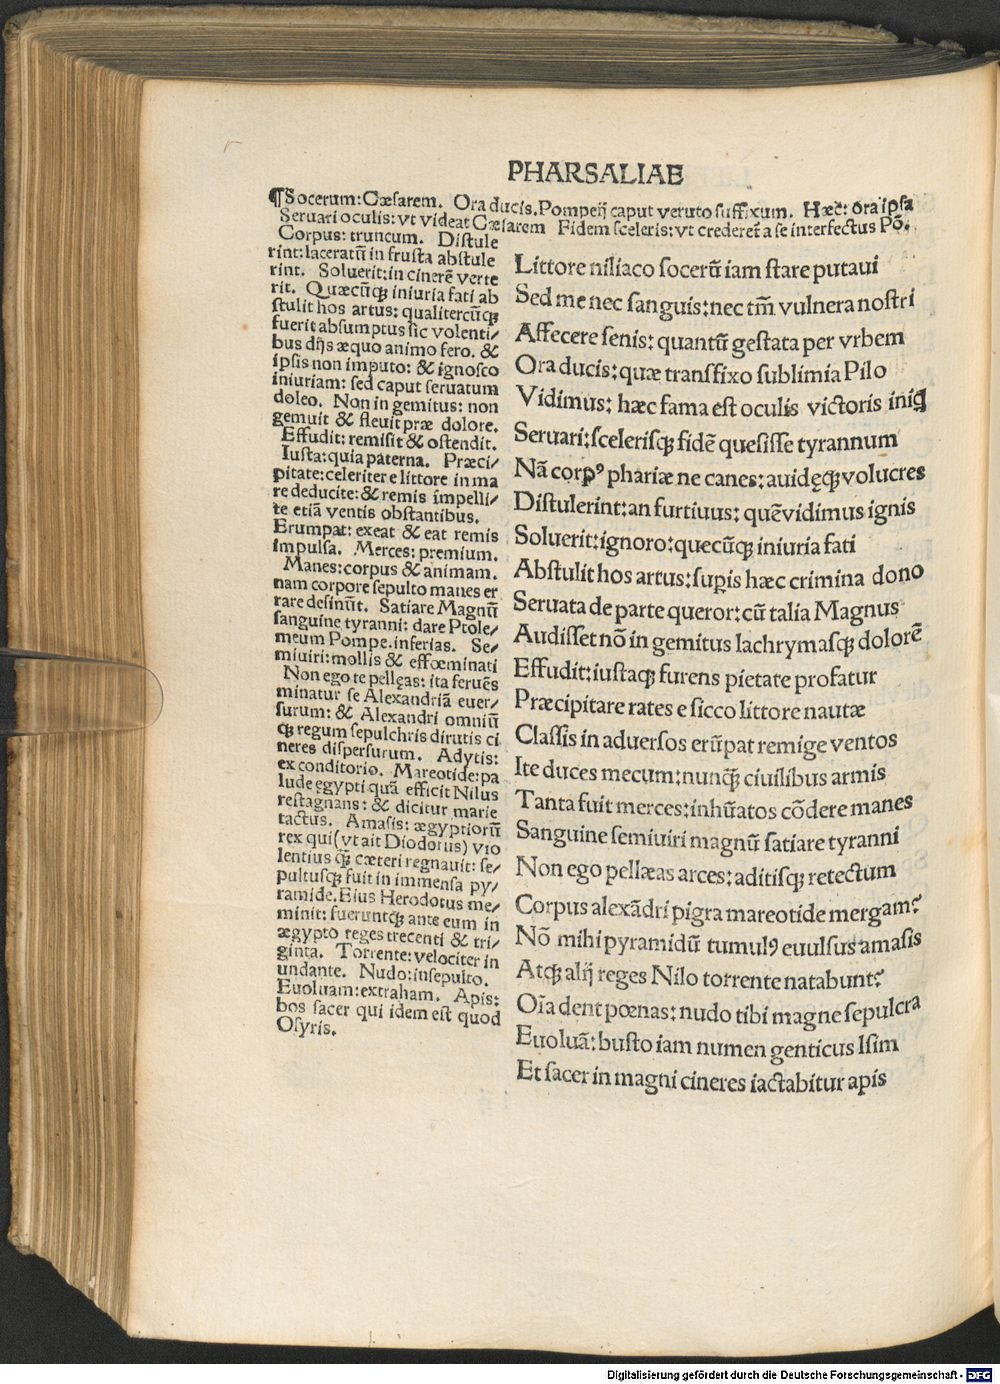 PHARSALIAE
¶Socerum: Cæsarem. Ora ducis. Pompeij caput veruto suffixum. Hæc: ora ipsa
Seruari oculis: vt videat Cæsarem Fidem sceleris: vt crederet̃ a se interfectus Põ.
Corpus: truncum. Distule
rint: laceratũ in frusta abstule
rint. Soluerit: in cinerẽ verte
rit. Quæcũꝗ iniuria fati ab
stulit hos artus: qualitercũꝗ
fuerit absumptus sic volenti/
bus dijs æquo animo fero. &
ipsis non imputo: & ignosco
iniuriam: sed caput seruatum
doleo. Non in gemitus: non
gemuit & fleuit præ dolore.
Effudit: remisit & ostendit.
Iusta: quia paterna. Præci/
pitate: celeriter e littore in ma
re deducite: & remis impelli/
te etiã ventis obstantibus.
Erumpat: exeat & eat remis
impulsa. Merces: premium.
Manes: corpus & animam.
nam corpore sepulto manes er
rare desinũt. Satiare Magnũ
sanguine tyranni: dare Ptole/
meum Pompe. inferias. Se/
miuiri: mollis & effœminati
Non ego te pellęas: ita feruẽs
minatur se Alexandriã euer/
surum: & Alexandri omniũ
ꝗ regum sepulchris dirutis ci
neres dispersurum. Adytis:
ex conditorio. Mareotide: pa
lude egypti quã efficit Nilus
restagnans: & dicitur marie
tactus. Amasis: ægyptiorũ
rex qui (vt ait Diodorus) vio
lentius ꝗ̃ cæteri regnauit: se/
pultusꝗ fuit in immensa py/
ramide. Eius Herodotus me/
minit: fueruntꝗ ante eum in
ægypto reges trecenti & tri/
ginta. Torrente: velociter in
undante. Nudo: insepulto.
Euoluam: extraham. Apis:
bos sacer qui idem est quod
Osyris.
Littore niliaco socerũ iam stare putaui
Sed me nec sanguis: nec tm̃ vulnera nostri
Affecere senis: quantũ gestata per vrbem
Ora ducis: quæ transfixo sublimia Pilo
Vidimus: hæc fama est oculis victoris iniꝗ
Seruari: scelerisꝗ fidẽ quesisse tyrannum
Nã corpꝰ phariæ ne canes: auidęꝗ volucres
Distulerint: an furtiuus: quẽ vidimus ignis
Soluerit: ignoro: quecũꝗ iniuria fati
Abstulit hos artus: suꝑis hæc crimina dono
Seruata de parte queror: cũ talia Magnus
Audisset nõ in gemitus lachrymasꝗ dolorẽ
Effudit: iustaꝗ furens pietate profatur
Præcipitare rates e sicco littore nautæ
Classis in aduersos erũpat remige ventos
Ite duces mecum: nunꝗ̃ ciuilibus armis
Tanta fuit merces: inhũatos cõdere manes
Sanguine semiuiri magnũ satiare tyranni
Non ego pellæas arces: aditisꝗ retectum
Corpus alexãdri pigra mareotide mergam?
Nõ mihi pyramidũ tumulꝰ euulsus amasis
Atꝗ alij reges Nilo torrente natabunt?
Oĩa dent pœnas: nudo tibi magne sepulcra
Euoluã: busto iam numen genticus Isim
Et sacer in magni cineres iactabitur apis
Digitalisierung gefördert durch die Deutsche Forschungsgemeinschaft - DFG